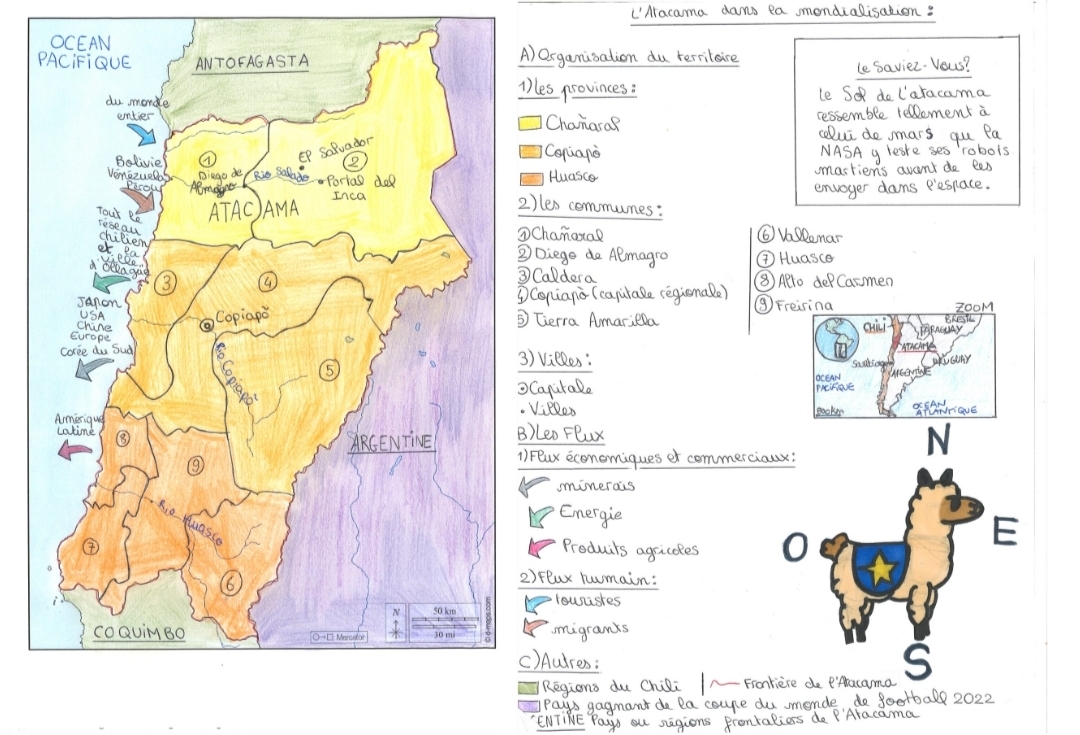 OCEAN
PACIFIQUE
ANTOFAGASTA
du monde
entier
Bolivie
Vénézuela
Pérou
Tout le
réseau
chilien
et la
ville
d'Ollagüe
JAPON
USA
Chine
Europe
Corée du Sud
Amérique
Latine
①
Diego de
Almagro
Rio Salado
El Salvador
②
Portal del
Inca
ATACAMA
③
④
Copiapò
Rio Copiapo
⑤
ARGENTINE
⑧
⑨
Rio Huasco
⑦
⑥
COQUIMBO
Mercator
N
50 km
30 mi
© d-maps.com
L'Atacama dans la mondialisation :
A) Organisation du territoire
1) les provinces :
Chañaral
Copiapò
Huasco
2) les communes :
① Chañaral
② Diego de Almagro
③ Caldera
④ Copiapò (capitale régionale)
⑤ Tierra Amarilla
⑥ Vallenar
⑦ Huasco
⑧ Alto del Carmen
⑨ Freirina
3) Villes :
Capitale
• Villes
B) Les Flux
1) Flux économiques et commerciaux :
minerais
Energie
Produits agricoles
2) Flux humain :
touristes
migrants
C) Autres :
Régions du Chili
Frontière de l'Atacama
Pays gagnant de la coupe du monde de football 2022
ENTINE Pays ou régions frontaliers de l'Atacama
Le Saviez-Vous?
Le Sol de l'atacama
ressemble tellement à
celui de mars que la
NASA y teste ses robots
martiens avant de les
envoyer dans l'espace.
ZOOM
CHILI
BRESIL
PARAGUAY
ATACAMA
Santiago
URUGUAY
ARGENTINE
OCEAN
PACIFIQUE
OCEAN
ATLANTIQUE
N
O
E
S